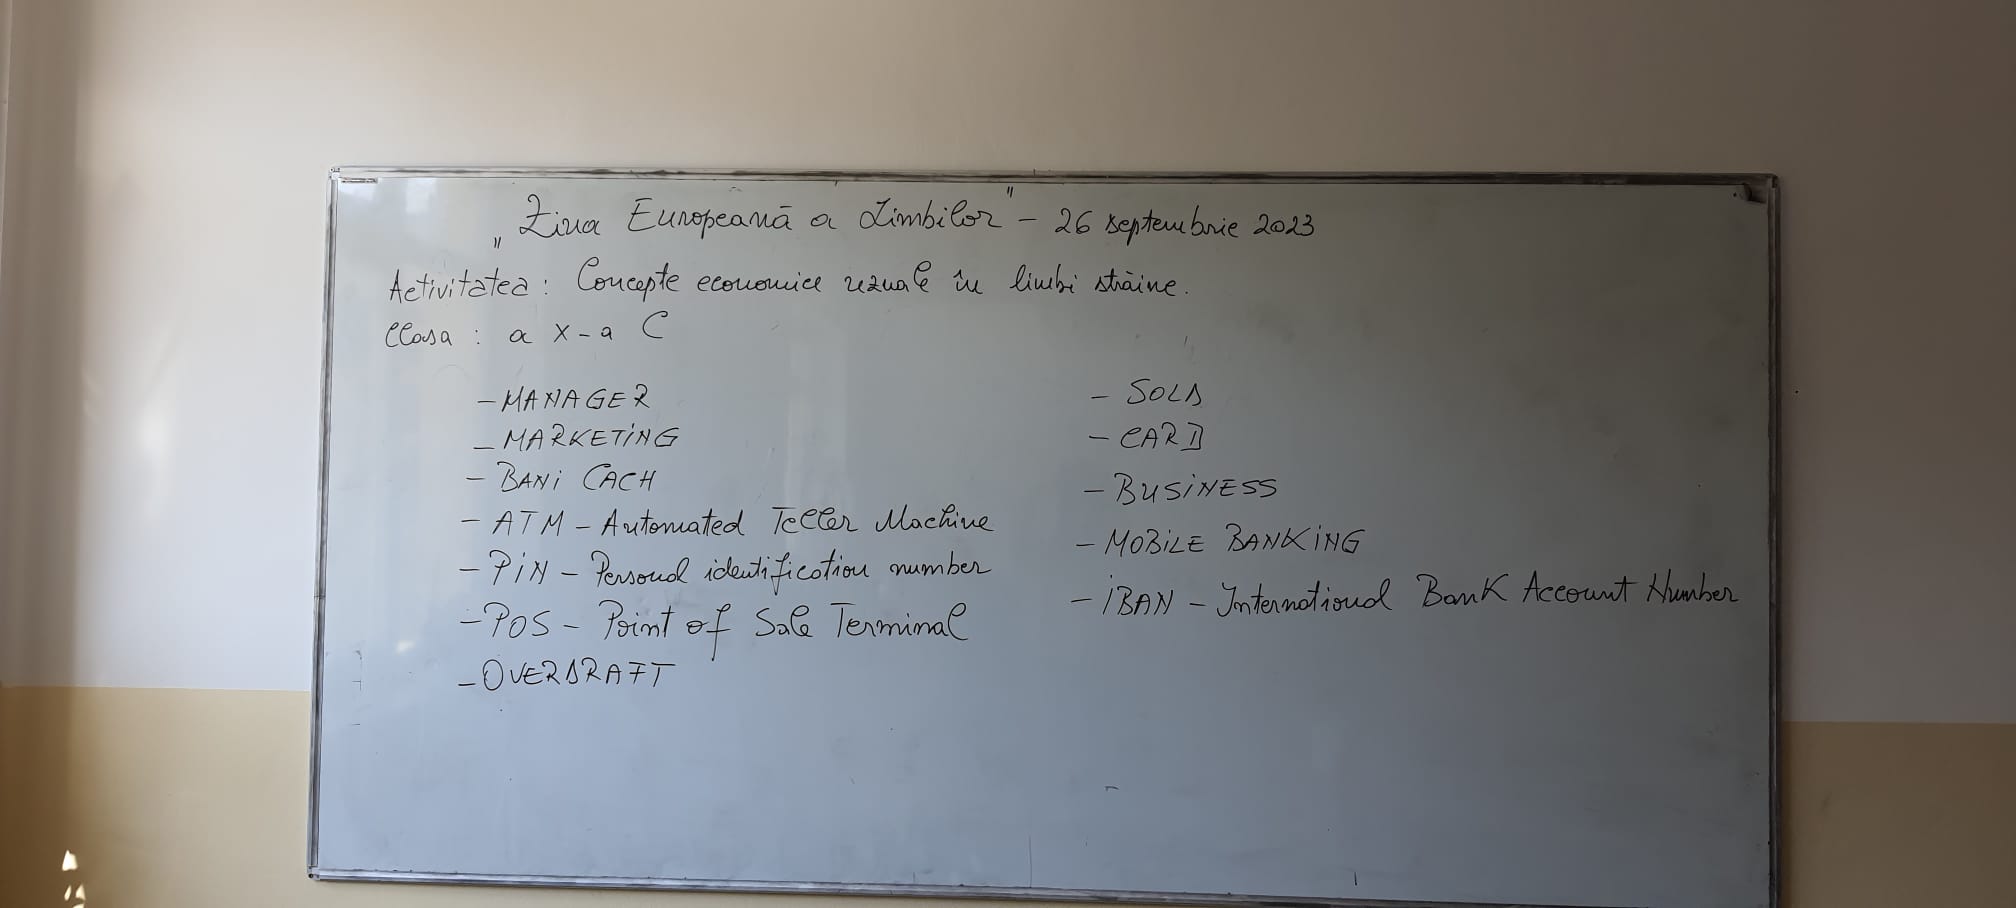 „Ziua Europeană a Limbilor” – 26 septembrie 2023
Activitatea : Concepte economice uzuale în limbi străine.
Clasa : a X-a C
– MANAGER
– MARKETING
– BANI CACH
– ATM – Automated Teller Machine
– PIN – Personal identification number
– POS – Point of Sale Terminal
– OVERDRAFT
– SOLD
– CARD
– BUSINESS
– MOBILE BANKING
– IBAN – International Bank Account Number